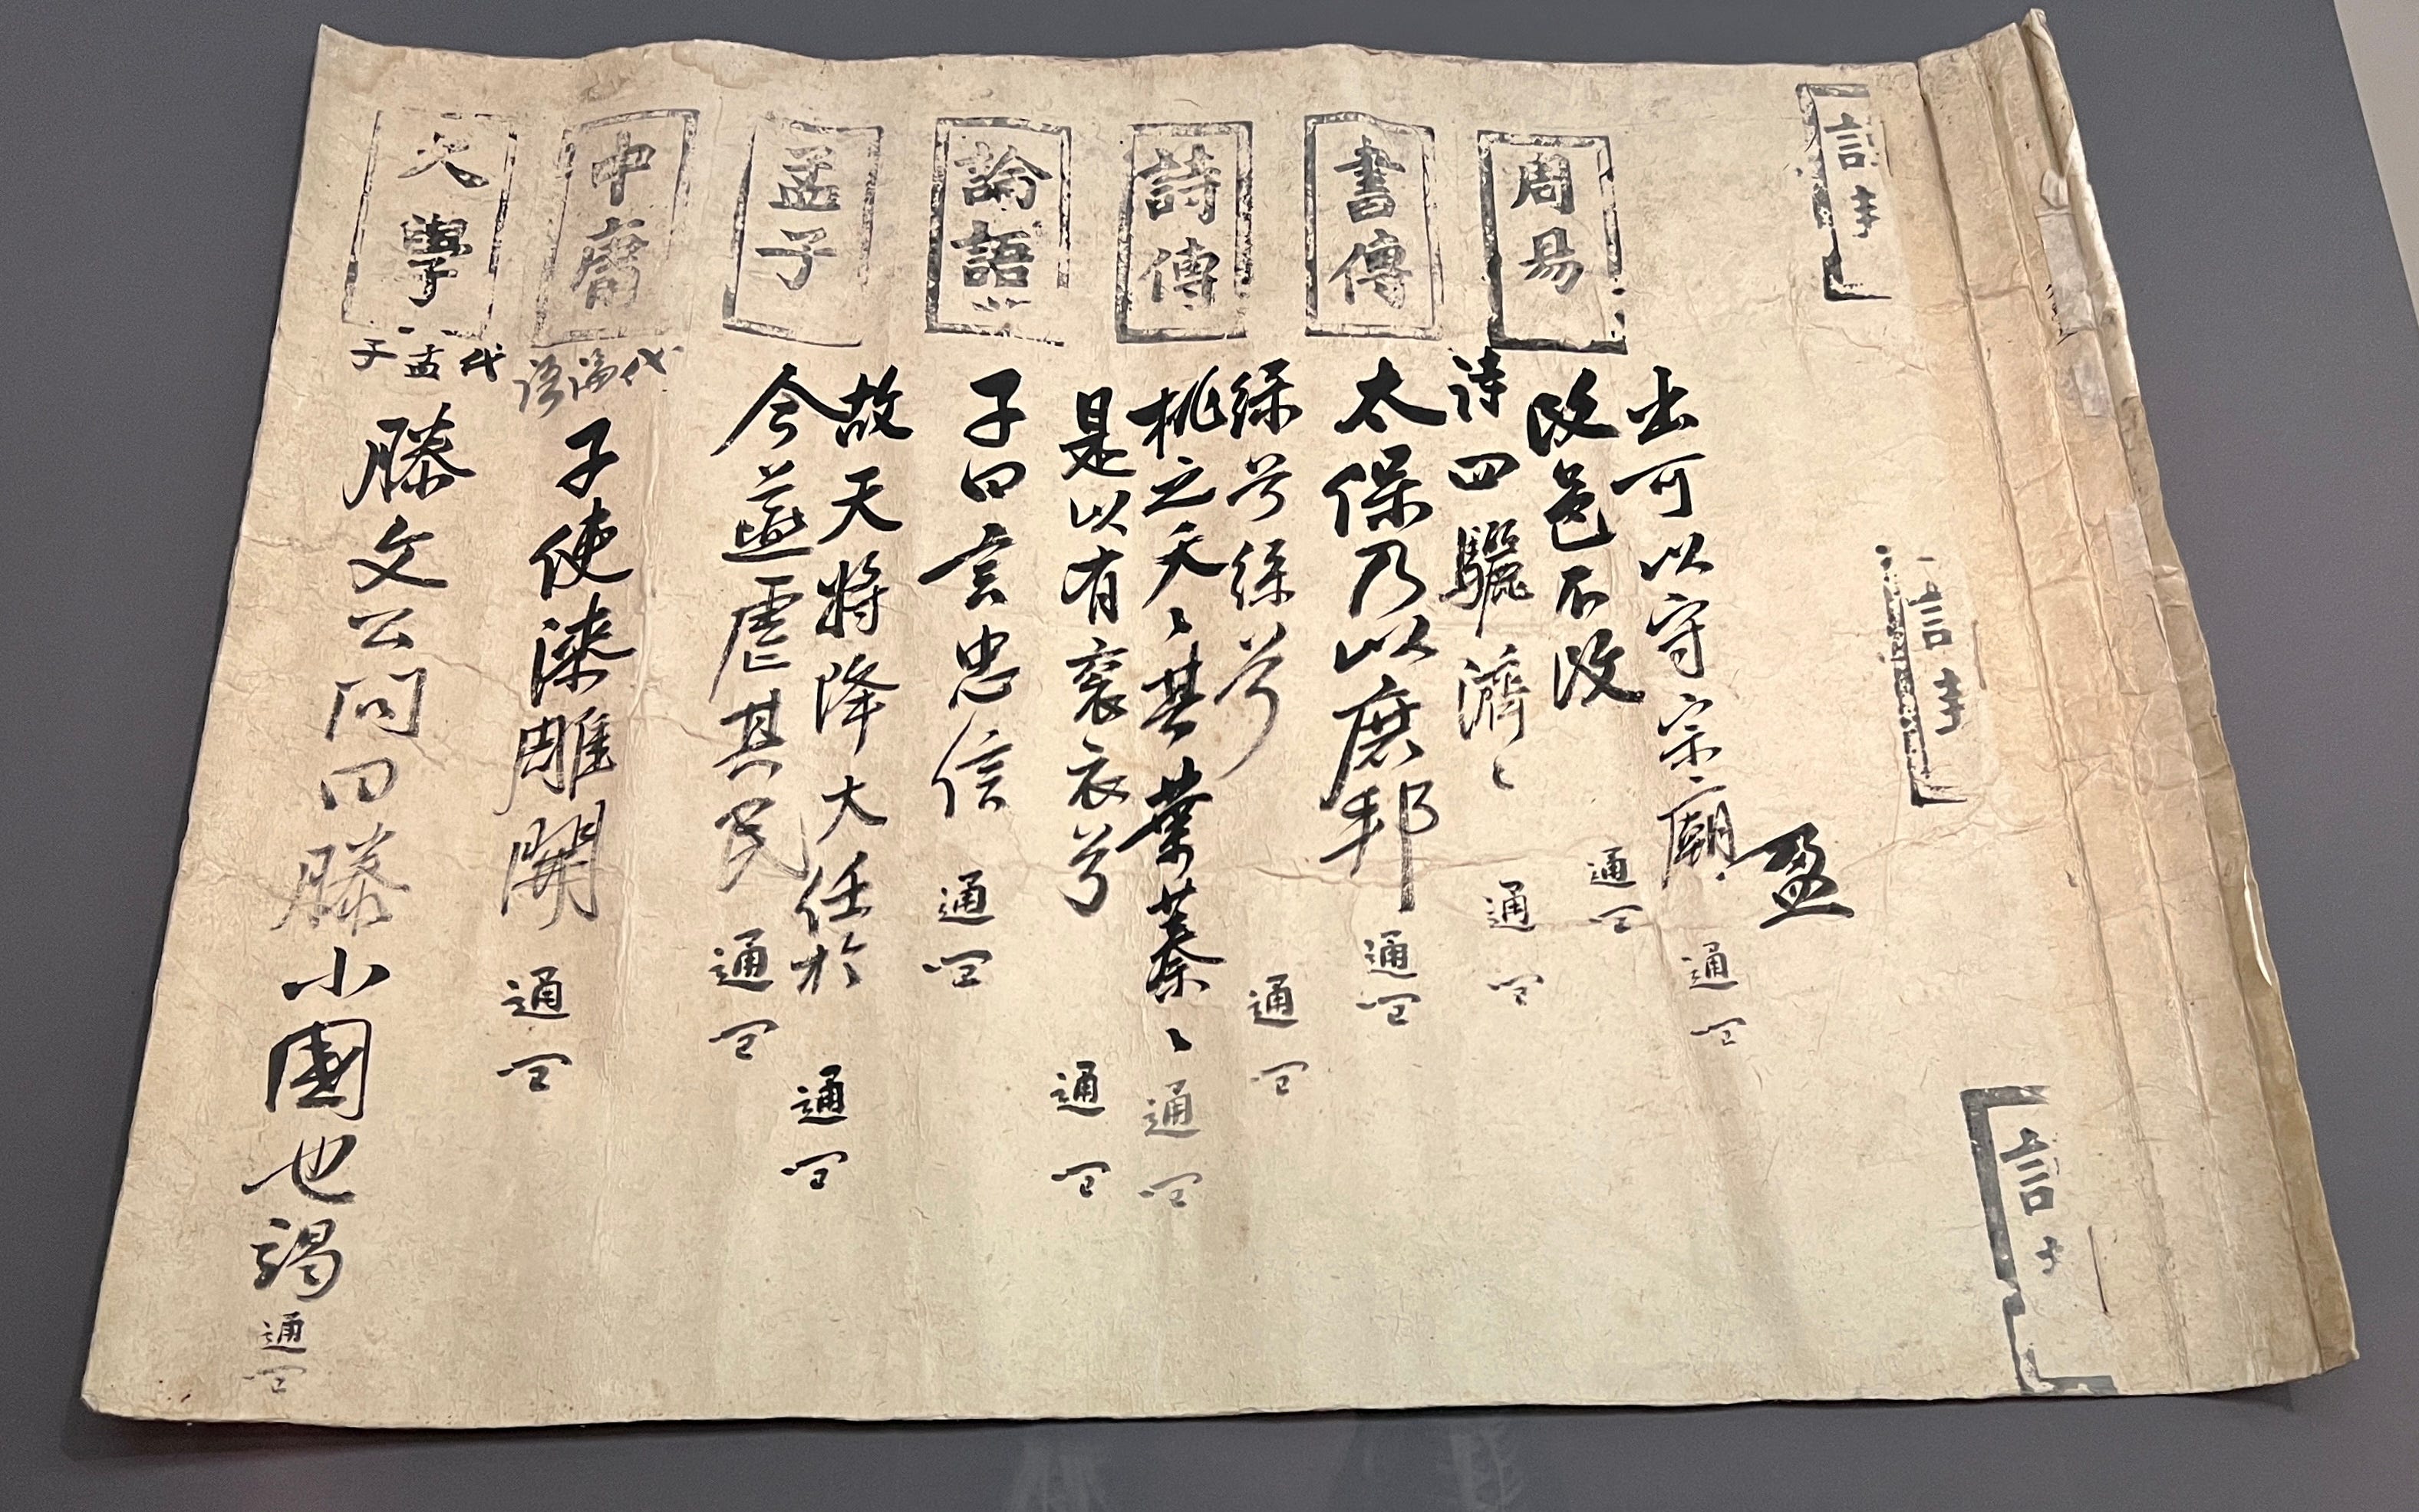 盈
周易
出可以守宗廟 通
改邑不改 通
詩四驪濟〻 通
書傳
太保乃以庶邦 通
詩傳
綠兮 兮 通
桃之夭〻其葉蓁〻 通
是以有袞衣兮 通
論語
子曰言忠信 通
孟子
故天將降大任於 通
今燕虐其民 通
中庸
代論語
子使漆雕開 通
大學
代孟子
滕文公問曰滕小國也竭 通